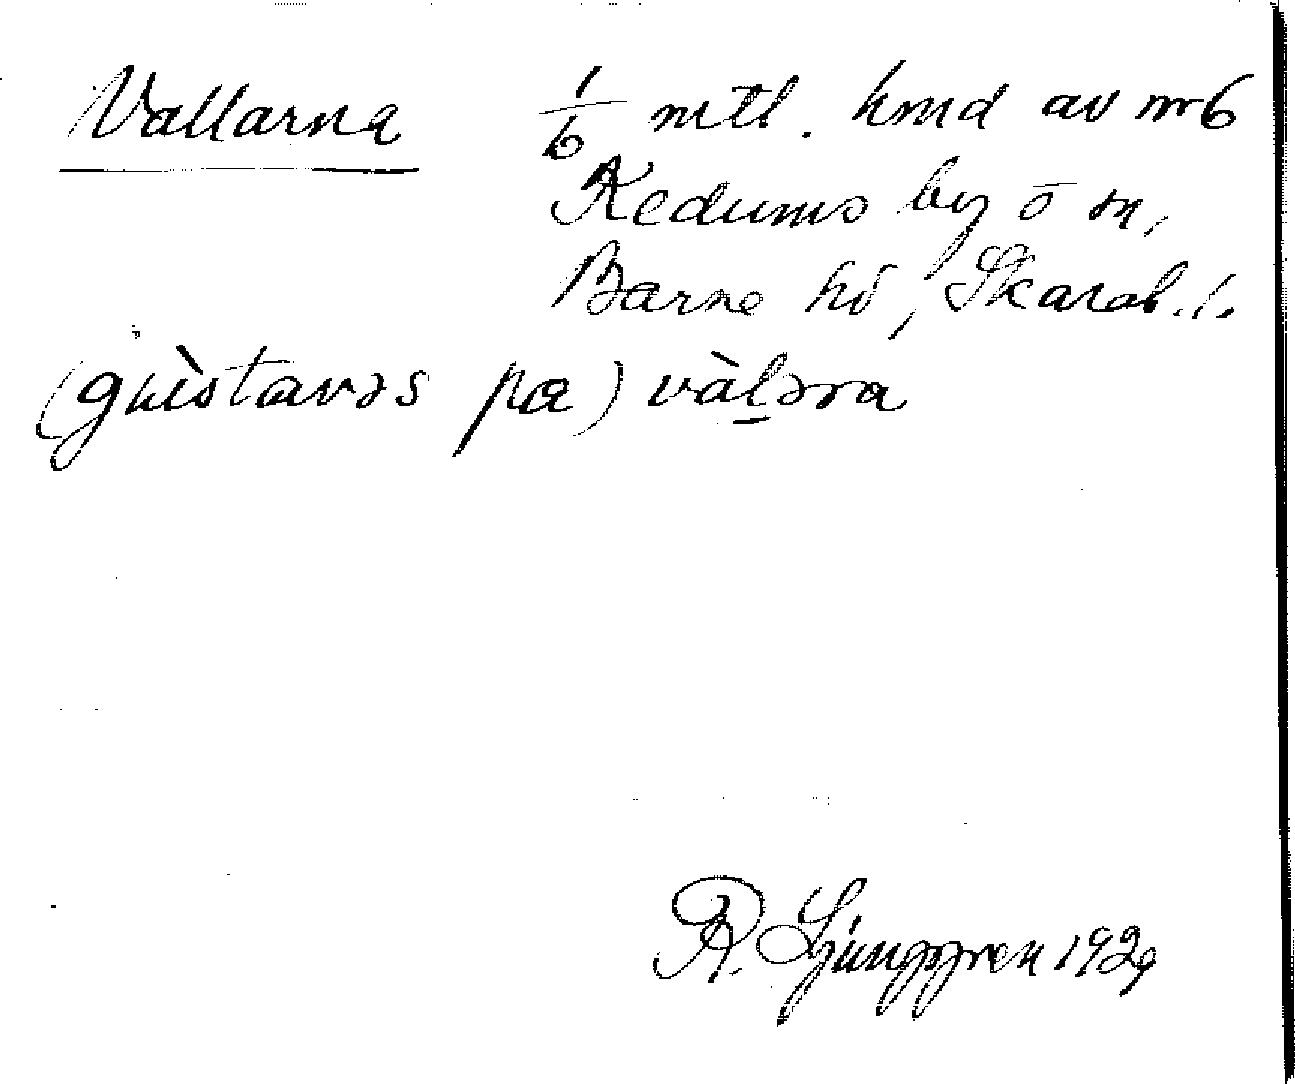 Vallarna 1/6 mtl. hmd av nr 6
Kedums by o sn,
Barne hd, Skarab. l.
(gùstavəs pa) vàləra
R. Ljunggren 1929